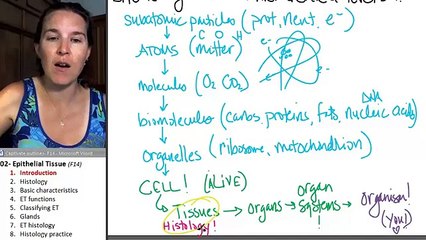 subatomic particles (prot, neut, e⁻)
C O H
ATOMS (matter)
e⁻
e⁻
molecules (O2 CO2)
DNA
biomolecules (carbs, proteins, fats, nucleic acids)
organelles (ribosome, mitochondrion)
CELL! (ALIVE)
Tissues → organs → organ systems → organism!
!
Histology!
(you!)
02- Epithelial Tissue (F14)
1. Introduction
2. Histology
3. Basic characteristics
4. ET functions
5. Classifying ET
6. Glands
7. ET histology
8. Histology practice